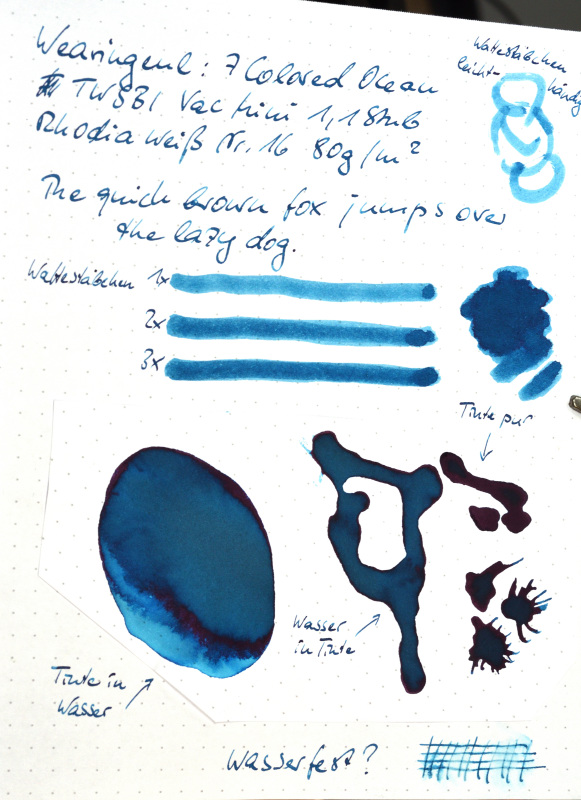 Wearingeul: 7 Colored Ocean
TWSBI Vac Mini 1,1 Stub
Rhodia weiß Nr. 16 80g/m²
Wattestäbchen
leicht-händig
The quick brown fox jumps over
the lazy dog.
Wattestäbchen 1x
2x
3x
Tinte pur
Wasser
in Tinte
Tinte in
Wasser
Wasserfest?